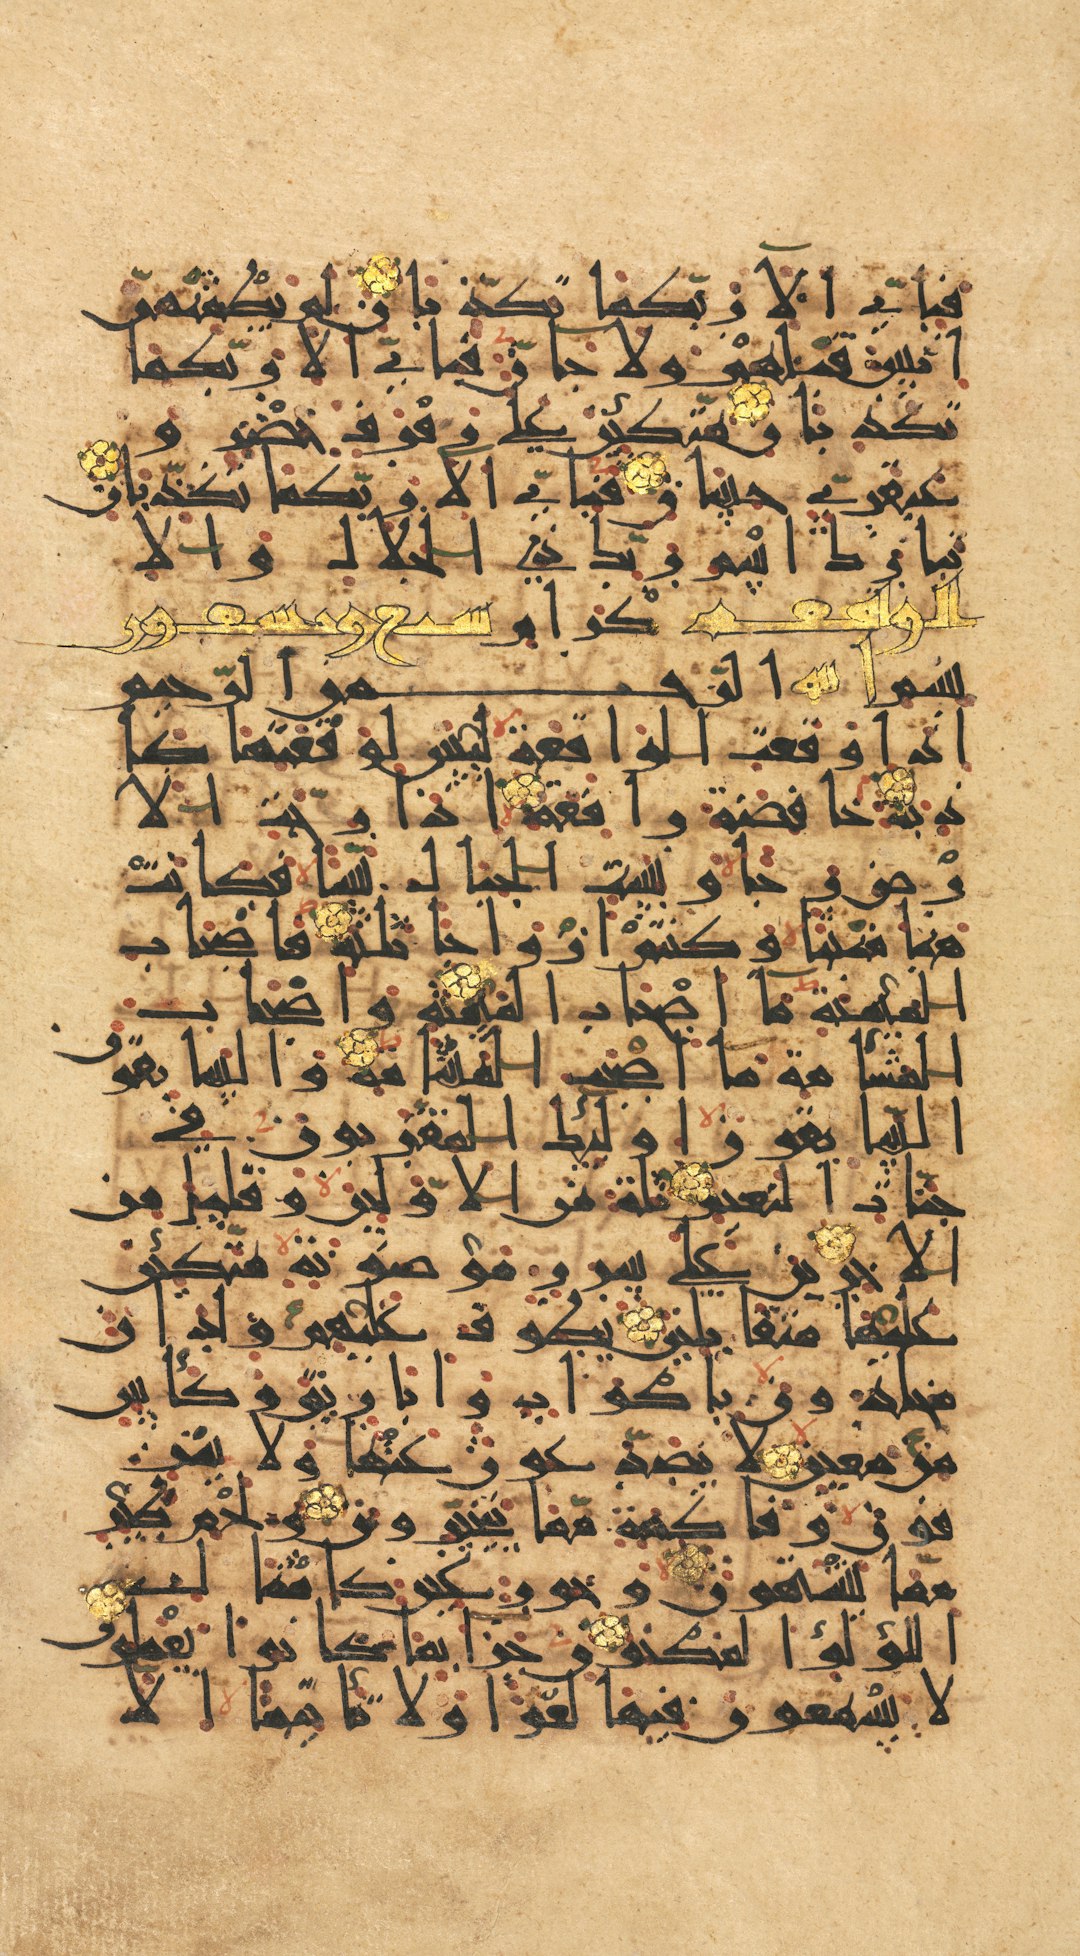 فباي الا ربكما تكذبان لم يطمثهن
انس قبلهم ولا جان فباي الا ربكما
تكذبان متكئين على رفرف خضر و
عبقري حسان فباي الا ربكما تكذبان
تبارك اسم ربك ذي الجلال والا
الواقعة كرام سبع وتسعون
بسم الله الرحمن الرحيم
اذا وقعت الواقعة ليس لوقعتها كا
ذبة خافضة رافعة اذا رجت الا
رض رجا وبست الجبال بسا فكانت
هبا منبثا وكنتم ازواجا ثلثة فاصحاب
الميمنة ما اصحاب الميمنة واصحاب
المشأمة ما اصحب المشأمة والسابقون
السابقون اولئك المقربون في
جنات النعيم ثلة من الاولين وقليل من
الاخرين على سرر موضونة متكئين
عليها متقابلين يطوف عليهم ولدان
مخلدون باكواب واباريق وكأس
من معين لا يصدعون عنها ولا ينز
فون وفاكهة مما يتخيرون ولحم طير
مما يشتهون وحور عين كامثال
اللؤلؤا المكنون جزا بما كانوا يعملون
لا يسمعون فيها لغوا ولا تأثيما الا